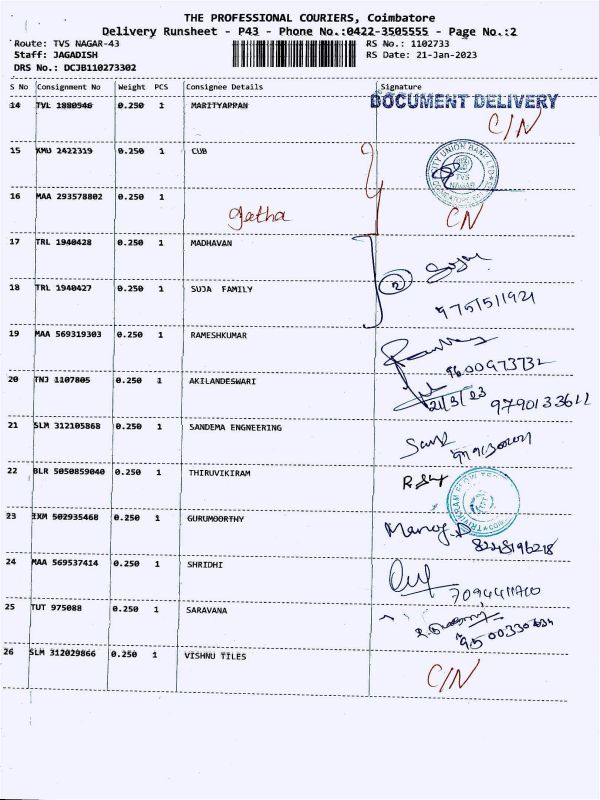 THE PROFESSIONAL COURIERS, Coimbatore
Delivery Runsheet - P43 - Phone No.:0422-3505555 - Page No.:2
Route: TVS NAGAR-43 RS No.: 1102733
Staff: JAGADISH RS Date: 21-Jan-2023
DRS No.: DCJB110273302
S No Consignment No Weight PCS Consignee Details Signature
14 TVL 1880540 0.250 1 MARITYAPPAN DOCUMENT DELIVERY
C/N
15 KMU 2422319 0.250 1 CUB
CITY UNION BANK LTD TVS NAGAR
16 MAA 293578802 0.250 1
geetha CN
17 TRL 1940428 0.250 1 MADHAVAN
18 TRL 1940427 0.250 1 SUJA FAMILY
9751511921
19 MAA 569319303 0.250 1 RAMESHKUMAR
9600973732
20 TNJ 1107805 0.250 1 AKILANDESWARI
9790133611
21 SLM 312105868 0.250 1 SANDEMA ENGNEERING
22 BLR 5050859040 0.250 1 THIRUVIKIRAM
23 IXM 502935468 0.250 1 GURUMOORTHY
Manoj.D
8248196218
24 MAA 569537414 0.250 1 SHRIDHI
25 TUT 975088 0.250 1 SARAVANA
26 SLM 312029866 0.250 1 VISHNU TILES
C/N